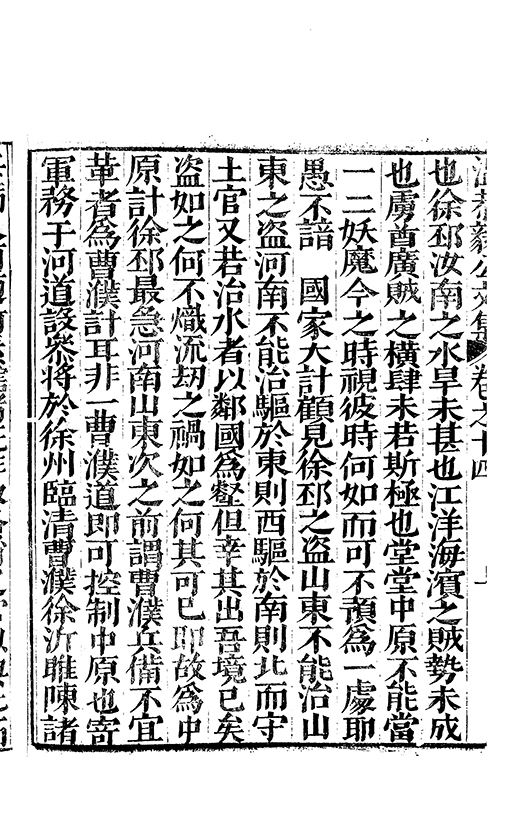 溫恭毅公文集 卷之十四
也徐邳汝南之水旱未甚也江洋海濱之賊勢未成
也虜酋廣賊之橫肆未若斯極也堂堂中原不能當
一二妖魔今之時視彼時何如而可不預為一處耶
愚不諳 國家大計顧見徐邳之盜山東不能治山
東之盜河南不能治驅於東則西驅於南則北而守
土官又若治水者以鄰國為壑但幸其出吾境已矣
盜如之何不熾流刼之禍如之何其可已耶故為中
原計徐邳最急河南山東次之前謂曹濮兵備不宜
革者為曹濮計耳非一曹濮道即可控制中原也寄
軍務于河道設叅將於徐州臨清曹濮徐沂睢陳諸